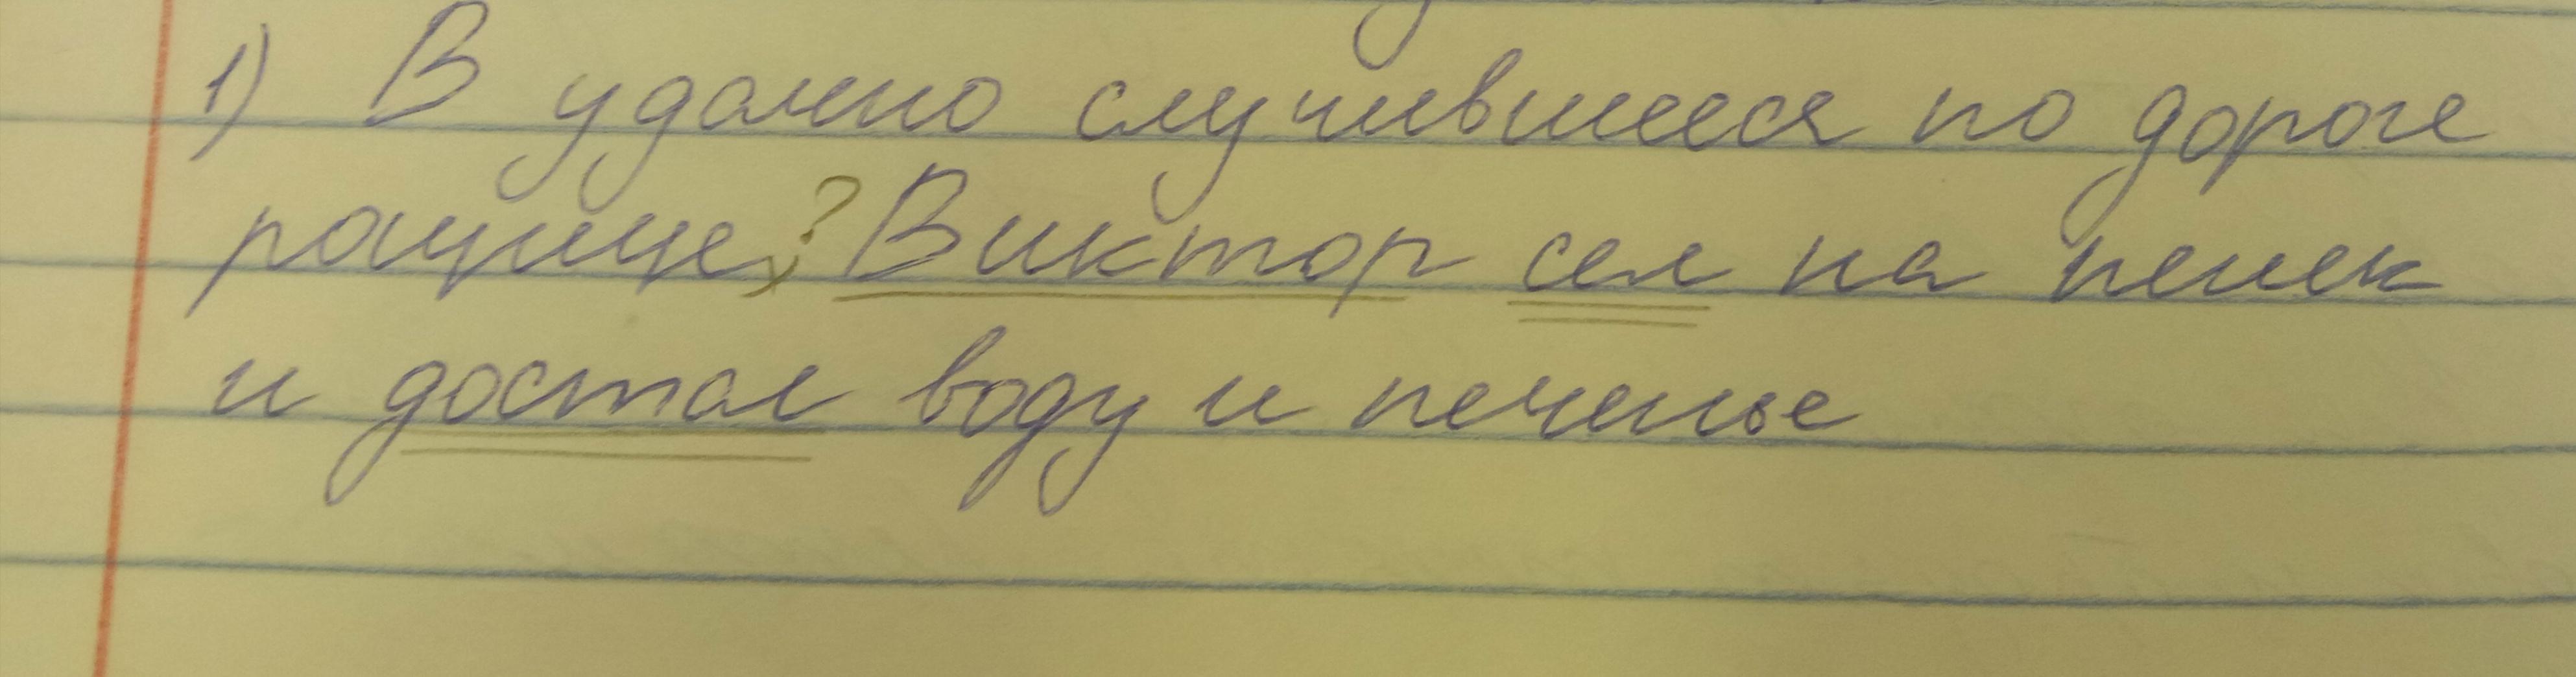 1) В удачно случившееся по дороге
рощице,? Виктор сел на пенек
и достал воду и печенье